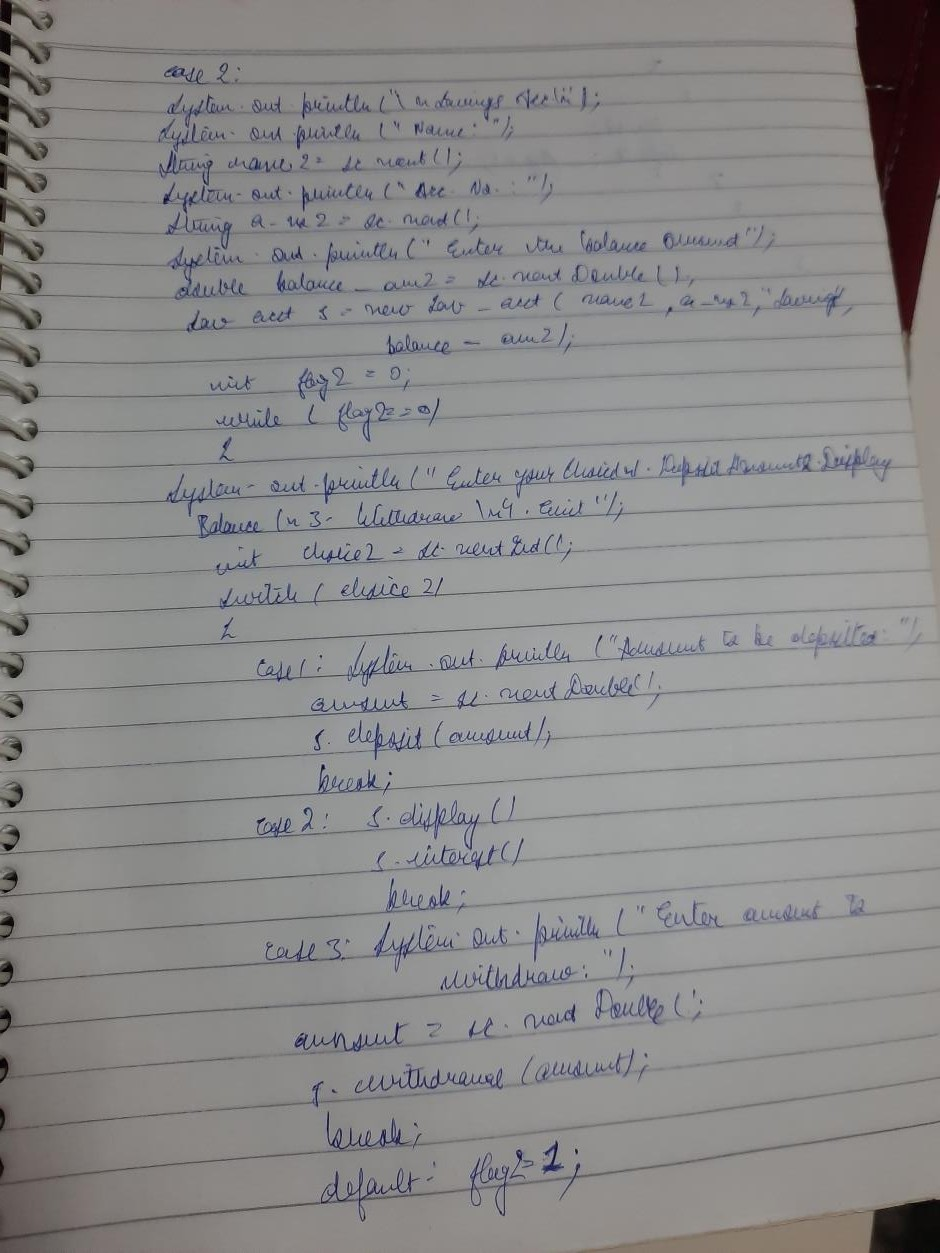 case 2:
System.out.println("\n Savings Acc\n");
System.out.println("Name: ");
String name2 = sc.next();
System.out.println("Acc. No. : ");
String a-no2 = sc.next();
System.out.println("Enter the balance amount");
double balance-am2 = sc.nextDouble();
Sav acct s = new Sav-acct(name2, a-no2, "Savings",
balance-am2);
int flag2 = 0;
while (flag2==0)
{
System.out.println("Enter your choice\n1. Deposit Amount 2. Display
Balance \n 3. Withdraw \n4. Exit");
int choice2 = sc.nextInt();
switch (choice 2)
{
case 1: System.out.println("Amount to be deposited: ");
amount = sc.nextDouble();
s.deposit(amount);
break;
case 2: s.display()
s.interest()
break;
case 3: System.out.println("Enter amount to
withdraw: ");
amount = sc.nextDouble();
s.withdrawal(amount);
break;
default: flag2=1;